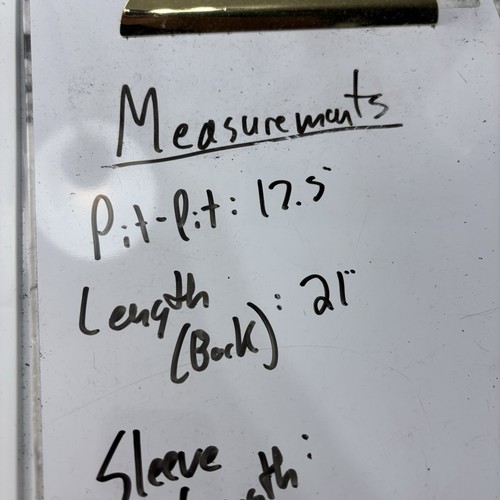 Measurements
Pit-Pit: 17.5"
Length : 21"
(Back)
Sleeve